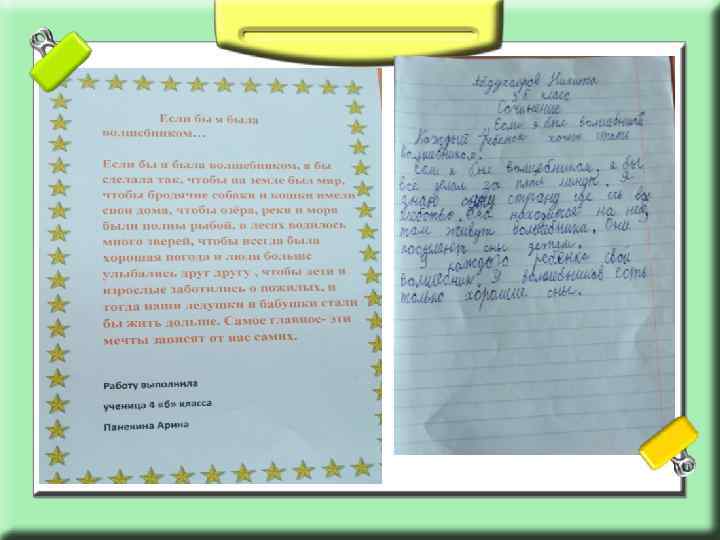 Если бы я была
волшебником…
Если бы я была волшебником, я бы
сделала так, чтобы на земле был мир,
чтобы бродячие собаки и кошки имели
свои дома, чтобы озёра, реки и моря
были полны рыбой, в лесах водилось
много зверей, чтобы всегда была
хорошая погода и люди больше
улыбались друг другу , чтобы дети и
взрослые заботились о пожилых, и
тогда наши дедушки и бабушки стали
бы жить дольше. Самое главное- эти
мечты зависят от нас самих.
Работу выполнила
ученица 4 «б» класса
Панекина Арина
Никита
класс
Сочинение
Если я был волшебником
Каждый ребенок хочет стать
волшебником.
Если я был волшебником, я бы
все за пять минут. Я
знаю одну страну где есть
Она находится на
там живут волшебника. Они
сны детям.
У каждого ребенка свой
волшебник. У волшебников есть
только хорошие сны.